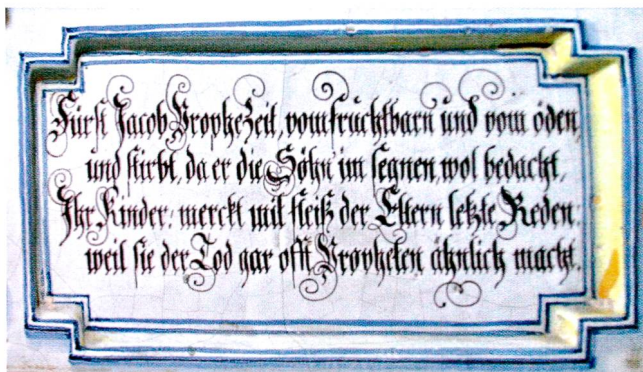 Fürst Jacob Prophezeit, vom fruchtbarn und vom öden,
und stirbt, da er die Söhn im segnen, wol bedacht,
Ihr Kinder: merckt mit fleiß der Eltern letzte Reden:
weil sie der Tod gar offt Propheten ähnlich macht.